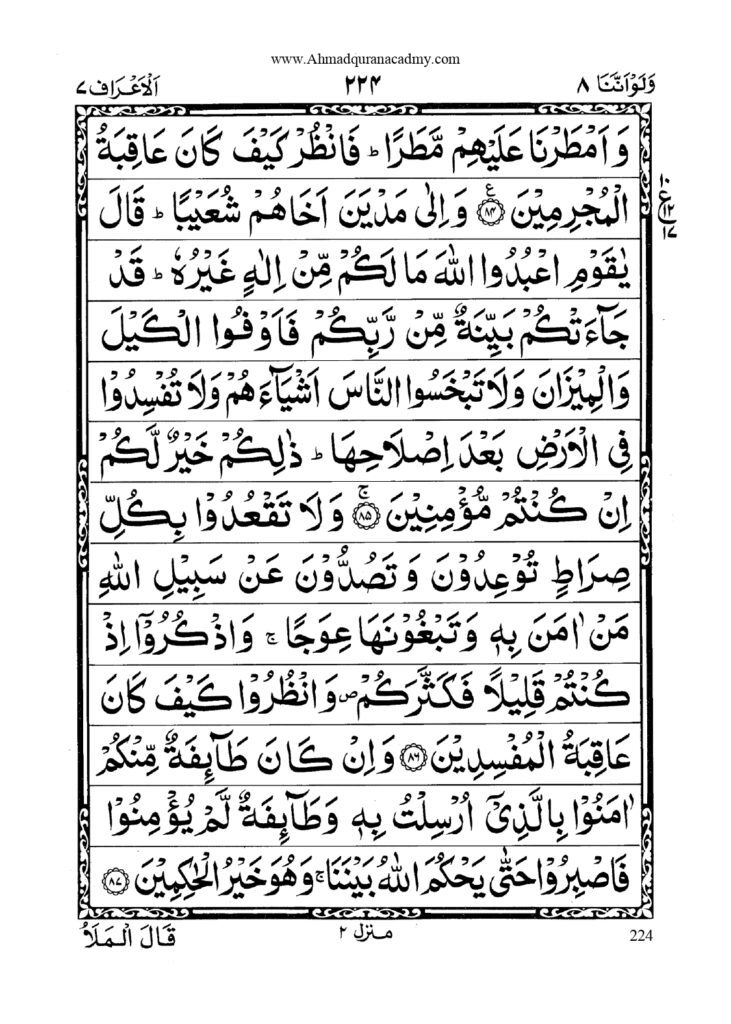 www.Ahmadquranacadmy.com
وَلَوْاَنَّنَا ٨ ٢٢٤ اَلْاَعْرَاف ٧
وَ اَمْطَرْنَا عَلَيْهِمْ مَّطَرًا ؕ فَانْظُرْ كَيْفَ كَانَ عَاقِبَةُ
الْمُجْرِمِيْنَ ۟ع ٨٤ وَ اِلٰى مَدْيَنَ اَخَاهُمْ شُعَيْبًا ؕ قَالَ
١٠ ع ١٢ ١٧
يٰقَوْمِ اعْبُدُوا اللّٰهَ مَا لَكُمْ مِّنْ اِلٰهٍ غَيْرُهٗ ؕ قَدْ
جَآءَتْكُمْ بَيِّنَةٌ مِّنْ رَّبِّكُمْ فَاَوْفُوا الْكَيْلَ
وَالْمِيْزَانَ وَلَا تَبْخَسُوا النَّاسَ اَشْيَآءَهُمْ وَلَا تُفْسِدُوْا
فِي الْاَرْضِ بَعْدَ اِصْلَاحِهَا ؕ ذٰلِكُمْ خَيْرٌ لَّكُمْ
اِنْ كُنْتُمْ مُّؤْمِنِيْنَ ۚ ٨٥ وَلَا تَقْعُدُوْا بِكُلِّ
صِرَاطٍ تُوْعِدُوْنَ وَ تَصُدُّوْنَ عَنْ سَبِيْلِ اللّٰهِ
مَنْ اٰمَنَ بِهٖ وَ تَبْغُوْنَهَا عِوَجًا ۚ وَاذْكُرُوْٓا اِذْ
كُنْتُمْ قَلِيْلًا فَكَثَّرَكُمْ ص وَانْظُرُوْا كَيْفَ كَانَ
عَاقِبَةُ الْمُفْسِدِيْنَ ٨٦ وَاِنْ كَانَ طَآئِفَةٌ مِّنْكُمْ
اٰمَنُوْا بِالَّذِيْٓ اُرْسِلْتُ بِهٖ وَطَآئِفَةٌ لَّمْ يُؤْمِنُوْا
فَاصْبِرُوْا حَتّٰى يَحْكُمَ اللّٰهُ بَيْنَنَا ۚ وَهُوَ خَيْرُ الْحٰكِمِيْنَ ٨٧
224 منزل ٢ قَالَ الْمَلَاُ